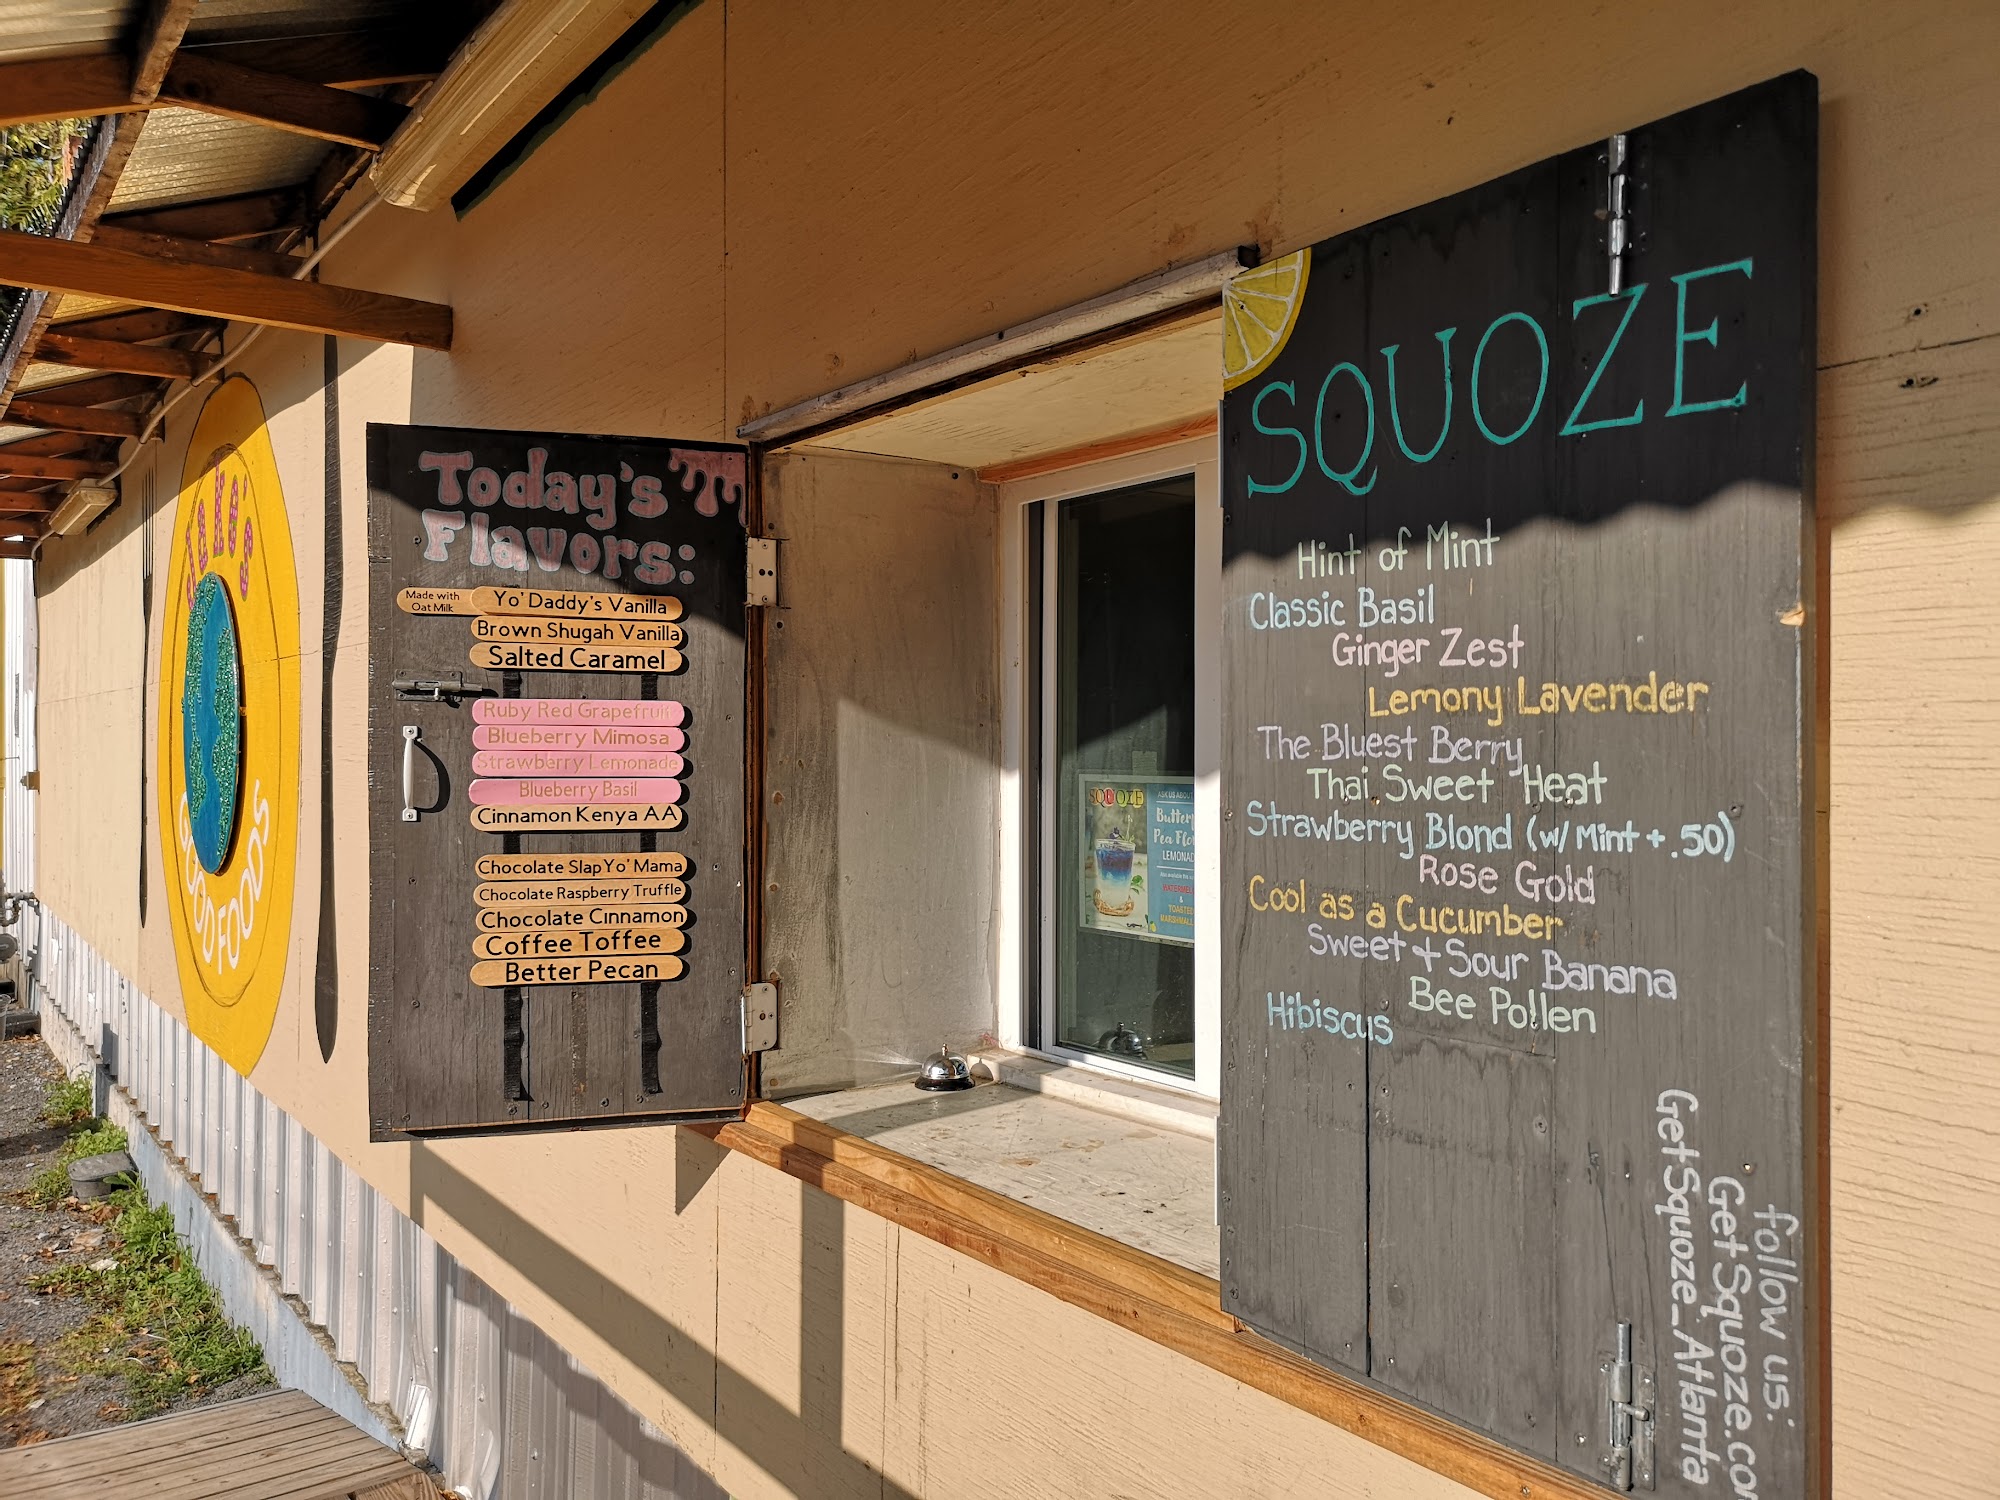 Jake's
GOOD FOODS
Today's
Flavors:
Made with
Oat Milk
Yo' Daddy's Vanilla
Brown Shugah Vanilla
Salted Caramel
Ruby Red Grapefruit
Blueberry Mimosa
Strawberry Lemonade
Blueberry Basil
Cinnamon Kenya AA
Chocolate Slap Yo' Mama
Chocolate Raspberry Truffle
Chocolate Cinnamon
Coffee Toffee
Better Pecan
SQUOZE
ASK US ABOUT
Pea
LEMONAD
&
SQUOZE
Hint of Mint
Classic Basil
Ginger Zest
Lemony Lavender
The Bluest Berry
Thai Sweet Heat
Strawberry Blond (w/ Mint + .50)
Rose Gold
Cool as a Cucumber
Sweet + Sour Banana
Bee Pollen
Hibiscus
follow us:
GetSquoze.co
GetSquoze_Atlanta